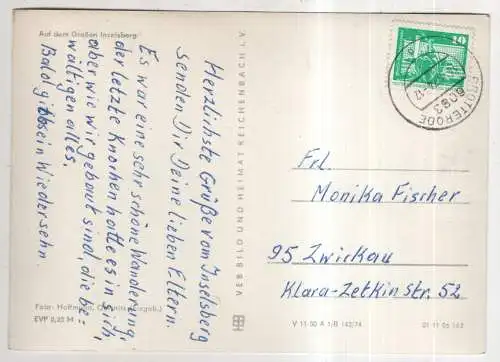 Auf dem Großen Inselsberg
Herzlichste Grüße vom Inselsberg
senden Dir Deine lieben Eltern.
Es war eine sehr schöne Wanderung,
der letzte Knochen hatte es in sich,
aber wie wir gebaut sind, die be-
wältigen alles.
Bald gibts ein Wiedersehn
Foto: Hoffmann,
EVP 0,25 M
VEB BILD UND HEIMAT REICHENBACH I. V.
10
BROTTERODE
6083
Frl.
Monika Fischer
95 Zwickau
Klara-Zetkin Str. 52
V 11 50 A 1/B 142/74
01 11 05 162